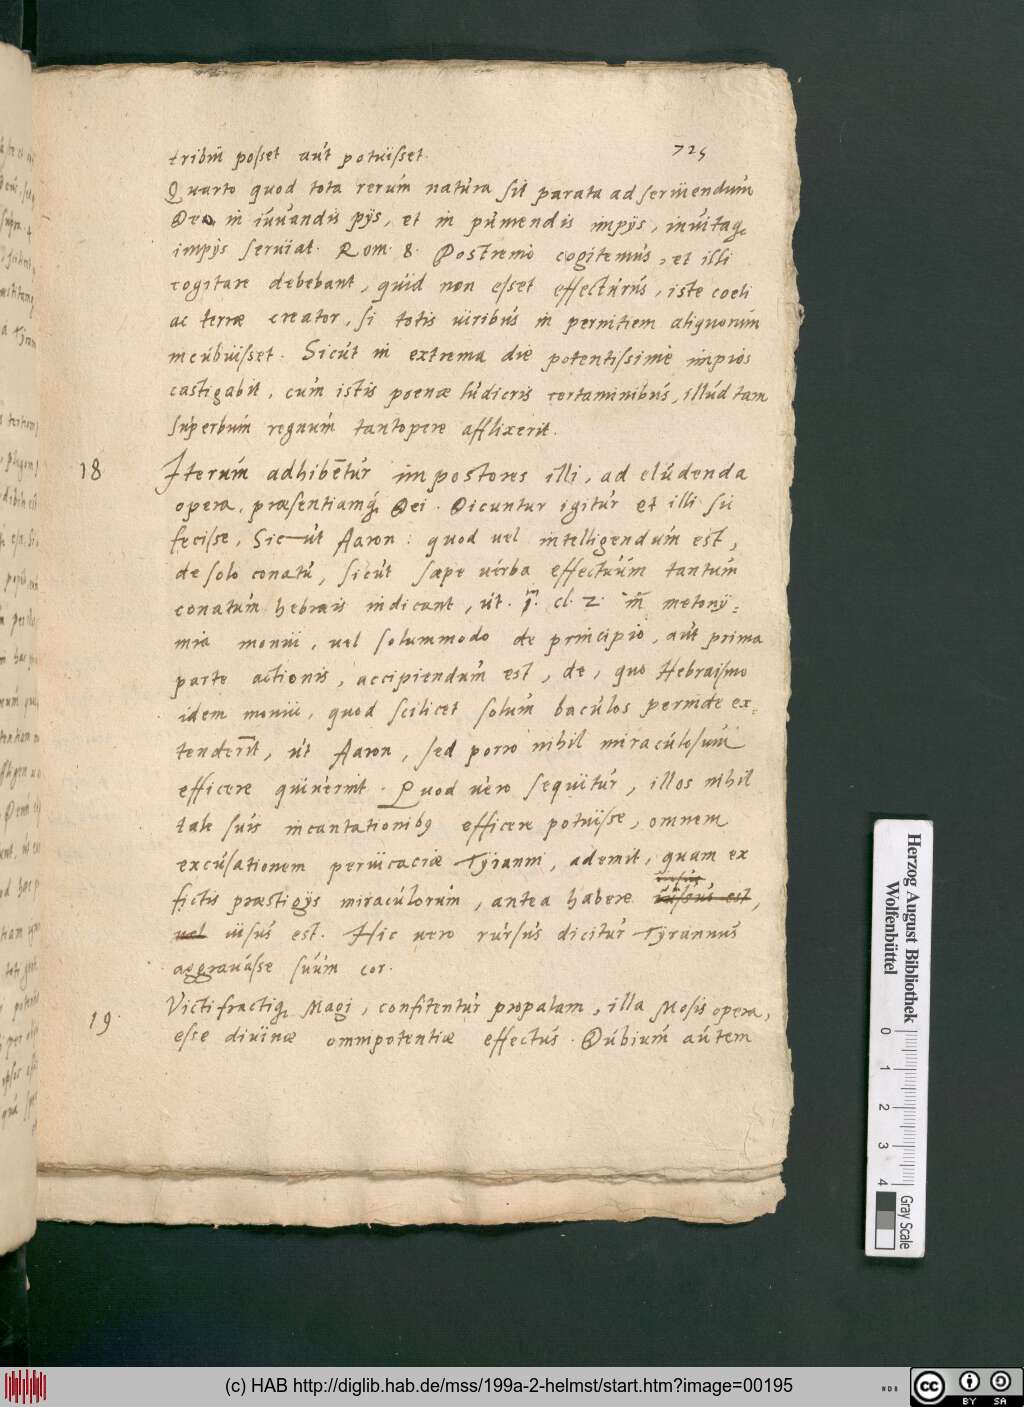 725
tribui posset aut potuisset.
Quarto quod tota rerum natura sit parata ad serviendum
Deo in iuvandis pijs, et in puniendis impijs, invitaq;
impijs serviat. Rom. 8. Postremo cogitemus, et illi
cogitare debebant, quid non esset effecturus, iste coeli
ac terræ creator, si totis viribus in pernitiem aliquorum
incubuisset. Sicut in extrema die potentissime impios
castigabit, cum istis poenæ ludicris certaminibus, illud tam
superbum regnum tantopere afflixerit.
18 Iterum adhibentur impostores illi, ad eludenda
opera, præsentiamq; Dei. Dicuntur igitur et illi sic
fecisse, Sicut Aaron: quod vel intelligendum est,
de solo conatu, sicut sæpe verba effectuum tantum
conatum hebræis indicant, ut. cl. 2. in metony=
mia monui, vel solummodo de principio, aut prima
parte actionis, accipiendum est, de, quo Hebraismo
idem monui, quod scilicet solum baculos perinde ex=
tenderit, ut Aaron, sed porro nihil miraculosum
efficere quiverint. Quod vero sequitur, illos nihil
tale suis incantationibus efficere potuisse, omnem
excusationem pervicaciæ Tyranni, ademit, quam ex
fictis præstigijs miraculorum, antea habere visus est,
vel visus est. Hic vero rursus dicitur Tyrannus
aggravasse suum cor.
19. Victi fractiq; Magi, confitentur propalam, illa Mosis opera,
esse divinæ omnipotentiæ effectus. Dubium autem
Herzog August Bibliothek
Wolfenbüttel
0 1 2 3 4
Gray Scale
(c) HAB http://diglib.hab.de/mss/199a-2-helmst/start.htm?image=00195
cc BY SA